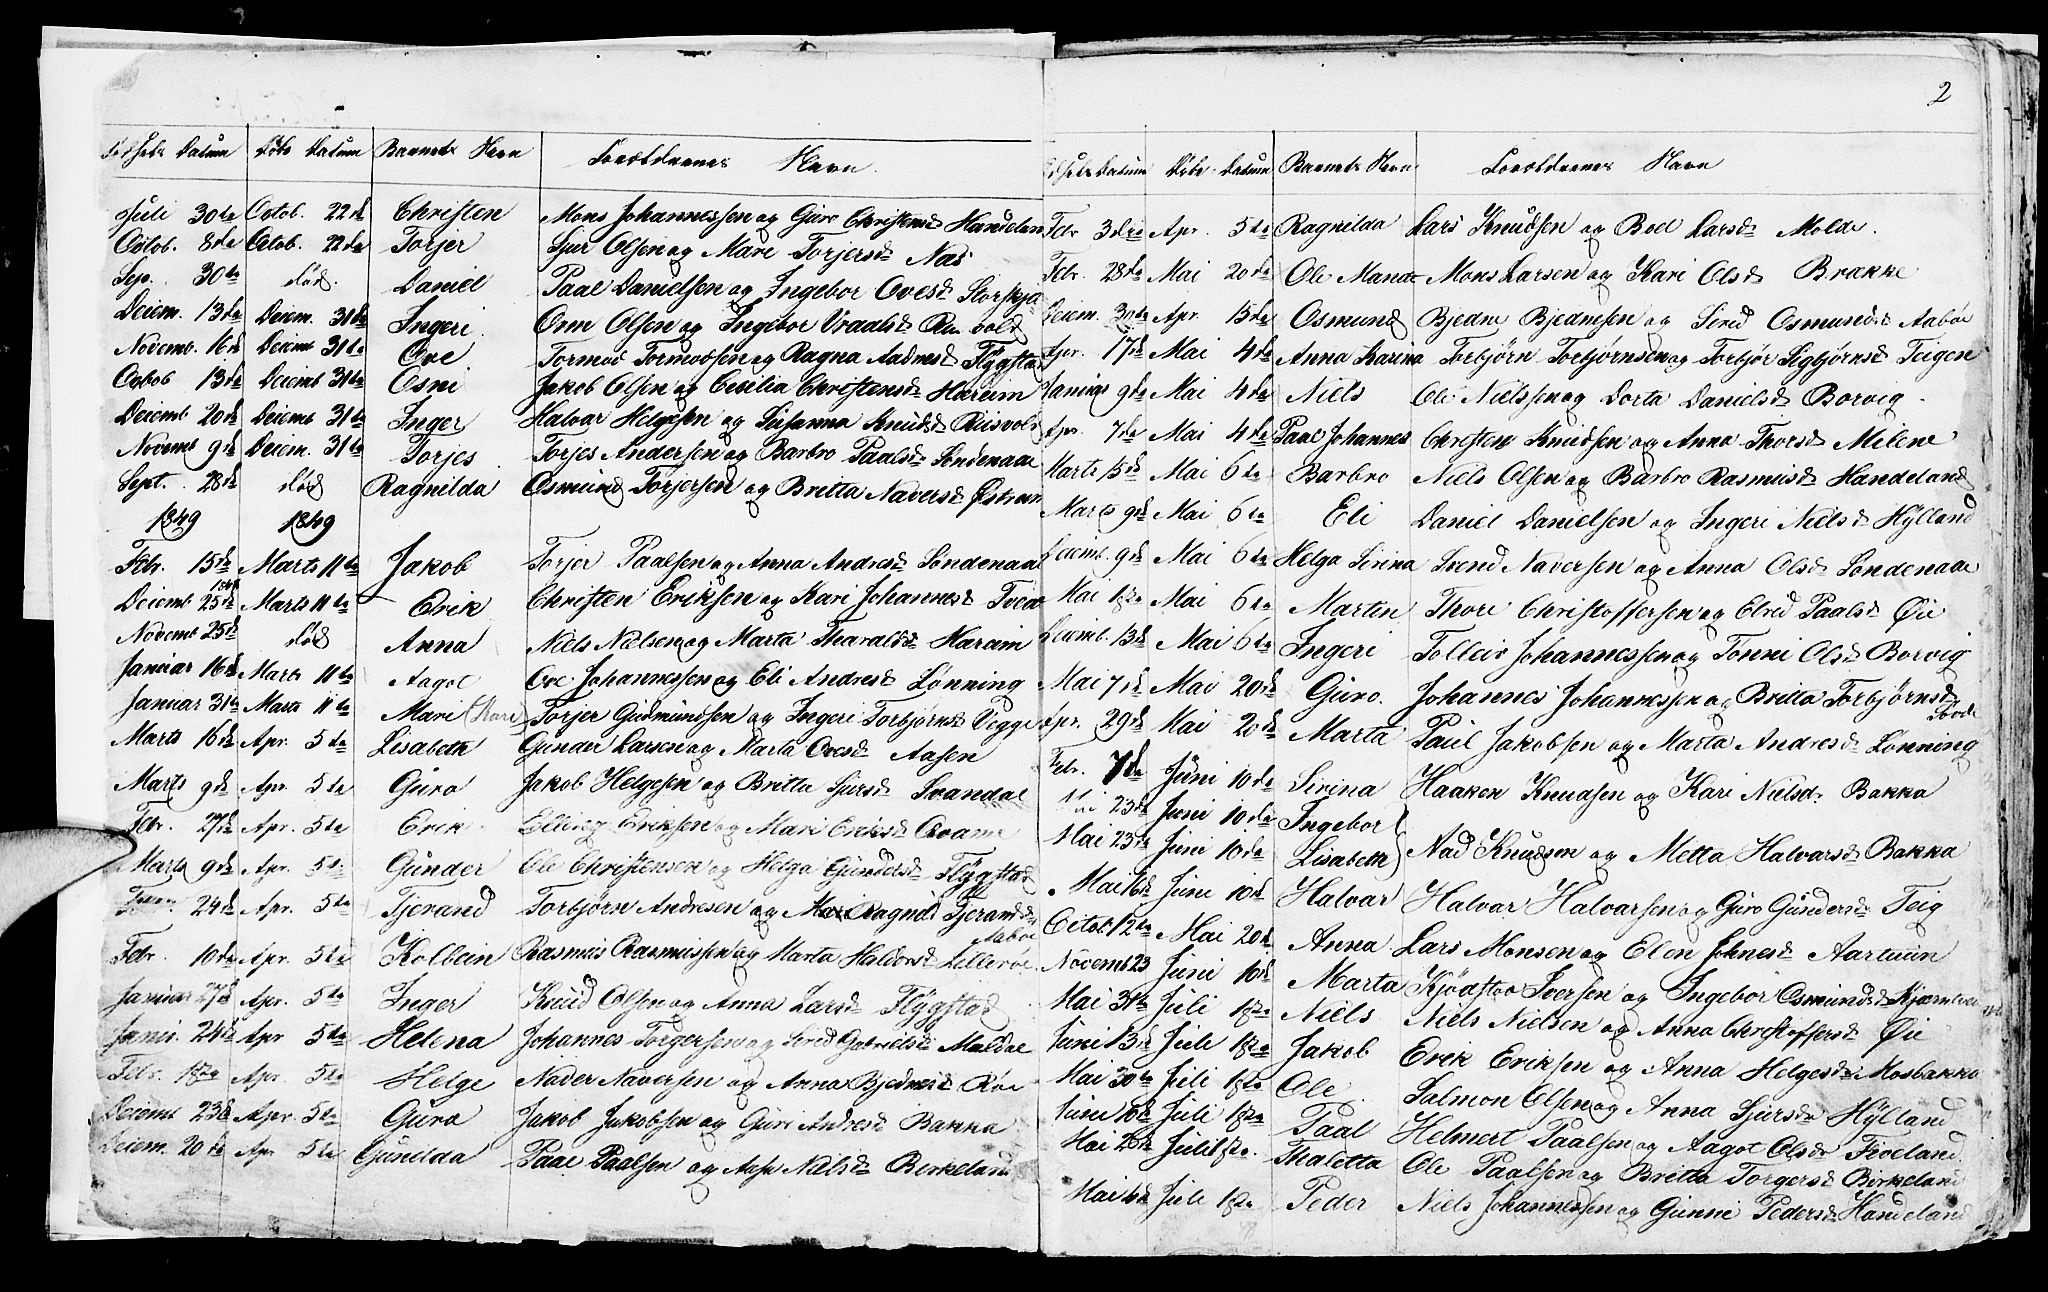 Fødsels Datum Døbe Datum Barnets Navn Forældrenes Navn
Juli 30te Octob. 22de Christen Mons Johannessen og Guro Christensd Handelan
Octob. 8de Octob. 22de Torjer Sjur Olsen og Mari Torjersd Næs
Sep. 30te død. Daniel Paal Danielsen og Ingebor Ovesd Storskja
Deiem. 13de Deiem. 31te Ingeri Onn Olsen og Ingebor Vraalsd Riisvold
Novemb. 16d Deiemb 31te Ove Tormod Tormodsen og Ragna Aadnesd Fløgstad
Octob 13de Deiemb 31te Osni Jakob Olsen og Cecilia Christensd Hareim
Deiemb 20d Deiemb 31te Inger Halvar Helgesen og Susanna Knudsd Riisvold
Novemb 9d Deiem. 31te Torjes Torjes Andersen og Barbro Paalsd Søndenaae
Sept. 28d død Ragnilda Osmund Torjersen og Britta Naversd Østrem
1849 1849
Febr. 15de Marts 11te Jakob Torjer Paalsen og Anna Andresd Søndenaae
Deiemb 25d Marts 11te Erik Christen Eriksen og Kari Johannesd Tved
Novemb 25d død Anna Niels Nielsen og Marta Haraldsd Hareim
Januar 16d Marts 11te Aagot Ove Johannessen og Eli Andresd Lønning
Januar 31te Marts 11te Mari (Kari) Torjer Gudmundsen og Ingeri Torbjørnsd Vegge
Marts 16d Apr. 5te Lisabeth Gunder Larsen og Marta Ovesd Aasen
Marts 9d Apr. 5te Guro Jakob Helgesen og Britta Sjursd Svandal
Febr. 27de Apr. 5te Erik Elling Eriksen og Mari Eriksd Qvame
Marts 9d Apr. 5te Gunder Ole Christensen og Helga Gundersd Fløgstad
24d Apr. 5te Tjerand Torbjørn Andresen og Ragnild Tjerandsd
Aabøe
Febr. 10de Apr. 5te Kolbein Rasmus Rasmussen og Marta Haldorsd Lillerøe
Januar 27d Apr. 5te Inger Knud Olsen og Anna Larsd Fløgstad
Janu. 24d Apr 5te Helena Johannes Torgersen og Serid Gabrielsd Maldal
Febr. 18de Apr. 5te Helge Nader Naversen og Anna Bjednesd Røe
Deiemb 23d Apr. 5te Guro Jakob Jakobsen og Guri Andresd Bakka
Deiem. 20de Apr 5te Gunilda Paal Paalsen og Aase Nielsd Birkeland
2
Fødsels Datum Døbe Datum Barnets Navn Forældrenes Navn
Febr 3die Apr. 5te Ragnilda Lars Knudsen og Boel Larsd Molde.
Febr. 28de Mai 20de Ole Mons Larsen og Kari Olsd Brække
Deiem. 30te Apr. 15de Osmund Bjedne Bjednesen og Serid Osmundsd Aabøe
Apr. 17de Mai 4de Anna Karina Torbjörn Torbjörnsen og Torbjør Sigbjørnsd Teigen
Januar 9de Mai 4de Niels Ole Nielssen og Dorta Danielsd Borvig
Apr. 7de Mai 4de Paal Johannes Christen Knudsen og Anna Thorsd Milene
Marts 15d Mai 6te Barbro Niels Olsen og Barbro Rasmusd Handeland
Marts 9d Mai 6te Eli Daniel Danielsen og Ingeri Nielsd Hylland
Deiemb. 9d Mai 6te Helga Sirina Svend Naversen og Anna Olsd Søndenaae
Mai 1ste Mai 6te Martin Thore Christoffersen og Elred Paalsd Øie
Deiemb. 13d Mai 6te Ingeri Tolleiv Johannessen og Tonni Olsd Borvig
Mai 7d Mai 20d Guro. Johannes Johannessen og Britta Torbjørnsd
Apr. 29d Mai 20de Marta Paul Jakobsen og Marta Andresd Lønning
Febr. 7de Juni 10de Sirina Haaken Knudsen og Kari Nielsd Bakka
Mai 23de Juni 10de Ingebor
Mai 23de Juni 10de Lisabeth Aad Knudsen og Metta Halvarsd Bakka
Mai 6d Juni 10d Halvar Halvar Halvarsen og Guro Gundersd Teig
Octob. 12te Mai 20d Anna Lars Monsen og Elen Johnesd Aartuun
Novemb 23 Juni 10d Marta Kjødstov Iversen og Ingebor Osmundsd
Mai 31te Juli 1ste Niels Niels Nielsen og Anna Christoffersd Øie
Juni 13d Juli 1ste Jakob Erik Eriksen og Anna Helgesd Mosbakka
Mai 30te Juli 1ste Ole Salmon Olsen og Anna Sjursd Hylland
Juni 10d Juli 1ste Paal Helmert Paalsen og Aagot Olsd Fiveland
Mai 26d Juli 1ste. Thaletta Ole Paalsen og Britta Torgersd Birkeland
Mai 16d Juli 1ste Peder Niels Johannessen og Gunni Pedersd Handeland